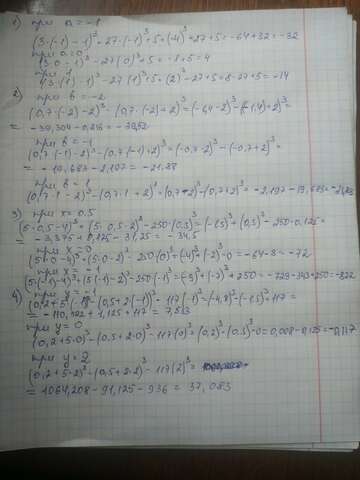 1) при a = -1
(3·(-1) - 1)³ - 27·(-1)³ + 5 = (-4)³ + 27 + 5 = -64 + 32 = -32
при a = 0
(3·0 - 1)³ - 27(0)³ + 5 = -1 + 5 = 4
при 1
(3(1) - 1)³ - 27(1)³ + 5 = (2)³ - 27 + 5 = 8 - 27 + 5 = -14
2) при b = -2
(0,7·(-2) - 2)³ - (0,7·(-2) + 2)³ = (-1,4 - 2)³ - (-1,4) + 2)³ =
= -39,304 - 0,216 = -39,52
при b = -1
(0,7·(-1) - 2)³ - (0,7·(-1) + 2)³ = (-0,7 - 2)³ - (-0,7 + 2)³ =
= -19,683 - 2,197 = -21,88
при b = 1
(0,7·1 - 2)³ - (0,7·1 + 2)³ = (0,7 - 2)³ - (0,7 + 2)³ = -2,197 - 19,683 = -21,88
3) при x = 0.5
(5·0,5 - 4)³ + (5·0,5 - 2)³ - 250(0,5)³ = (-1,5)³ + (0,5)³ - 250·0,125 =
= -3,375 + 0,125 - 31,25 = -34,5
при x = 0
(5·0 - 4)³ + (5·0 - 2)³ - 250(0)³ = (-4)³ + (-2)³ - 0 = -64 - 8 = -72
при x = -1
(5(-1) - 4)³ + (5(-1) - 2)³ - 250(-1)³ = (-9)³ + (-7)³ + 250 = -729 - 343 + 250 = -822
4) при y = -1
(0,2 + 5(-1))³ - (0,5 + 2(-1))³ - 117(-1)³ = (-4,8)³ - (-1,5)³ + 117 =
= -110,592 + 1,125 + 117 = 7,533
при y = 0
(0,2 + 5·0)³ - (0,5 + 2·0)³ - 117(0)³ = (0,2)³ - (0,5)³ - 0 = 0,008 - 0,125 = -0,117
при y = 2
(0,2 + 5·2)³ - (0,5 + 2·2)³ - 117(2)³ =
= 1064,208 - 91,125 - 936 = 37,083